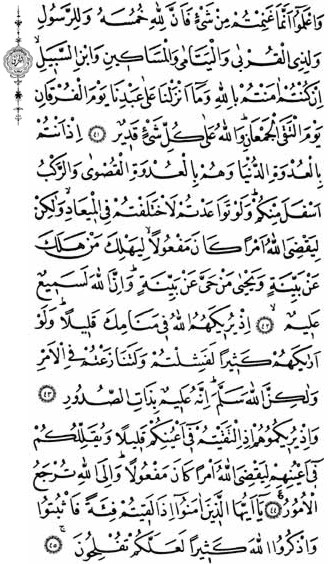 وَاعْلَمُوا أَنَّمَا غَنِمْتُمْ مِنْ شَيْءٍ فَأَنَّ لِلَّهِ خُمُسَهُ وَلِلرَّسُولِ
وَلِذِي الْقُرْبَىٰ وَالْيَتَامَىٰ وَالْمَسَاكِينِ وَابْنِ السَّبِيلِ
إِنْ كُنْتُمْ آمَنْتُمْ بِاللَّهِ وَمَا أَنْزَلْنَا عَلَىٰ عَبْدِنَا يَوْمَ الْفُرْقَانِ
يَوْمَ الْتَقَى الْجَمْعَانِ وَاللَّهُ عَلَىٰ كُلِّ شَيْءٍ قَدِيرٌ ﴿٤١﴾ إِذْ أَنْتُمْ
بِالْعُدْوَةِ الدُّنْيَا وَهُمْ بِالْعُدْوَةِ الْقُصْوَىٰ وَالرَّكْبُ
أَسْفَلَ مِنْكُمْ وَلَوْ تَوَاعَدْتُمْ لَاخْتَلَفْتُمْ فِي الْمِيعَادِ وَلَٰكِنْ
لِيَقْضِيَ اللَّهُ أَمْرًا كَانَ مَفْعُولًا لِيَهْلِكَ مَنْ هَلَكَ
عَنْ بَيِّنَةٍ وَيَحْيَىٰ مَنْ حَيَّ عَنْ بَيِّنَةٍ وَإِنَّ اللَّهَ لَسَمِيعٌ
عَلِيمٌ ﴿٤٢﴾ إِذْ يُرِيكَهُمُ اللَّهُ فِي مَنَامِكَ قَلِيلًا وَلَوْ
أَرَاكَهُمْ كَثِيرًا لَفَشِلْتُمْ وَلَتَنَازَعْتُمْ فِي الْأَمْرِ
وَلَٰكِنَّ اللَّهَ سَلَّمَ إِنَّهُ عَلِيمٌ بِذَاتِ الصُّدُورِ ﴿٤٣﴾
وَإِذْ يُرِيكُمُوهُمْ إِذِ الْتَقَيْتُمْ فِي أَعْيُنِكُمْ قَلِيلًا وَيُقَلِّلُكُمْ
فِي أَعْيُنِهِمْ لِيَقْضِيَ اللَّهُ أَمْرًا كَانَ مَفْعُولًا وَإِلَى اللَّهِ تُرْجَعُ
الْأُمُورُ ﴿٤٤﴾ يَا أَيُّهَا الَّذِينَ آمَنُوا إِذَا لَقِيتُمْ فِئَةً فَاثْبُتُوا
وَاذْكُرُوا اللَّهَ كَثِيرًا لَعَلَّكُمْ تُفْلِحُونَ ﴿٤٥﴾